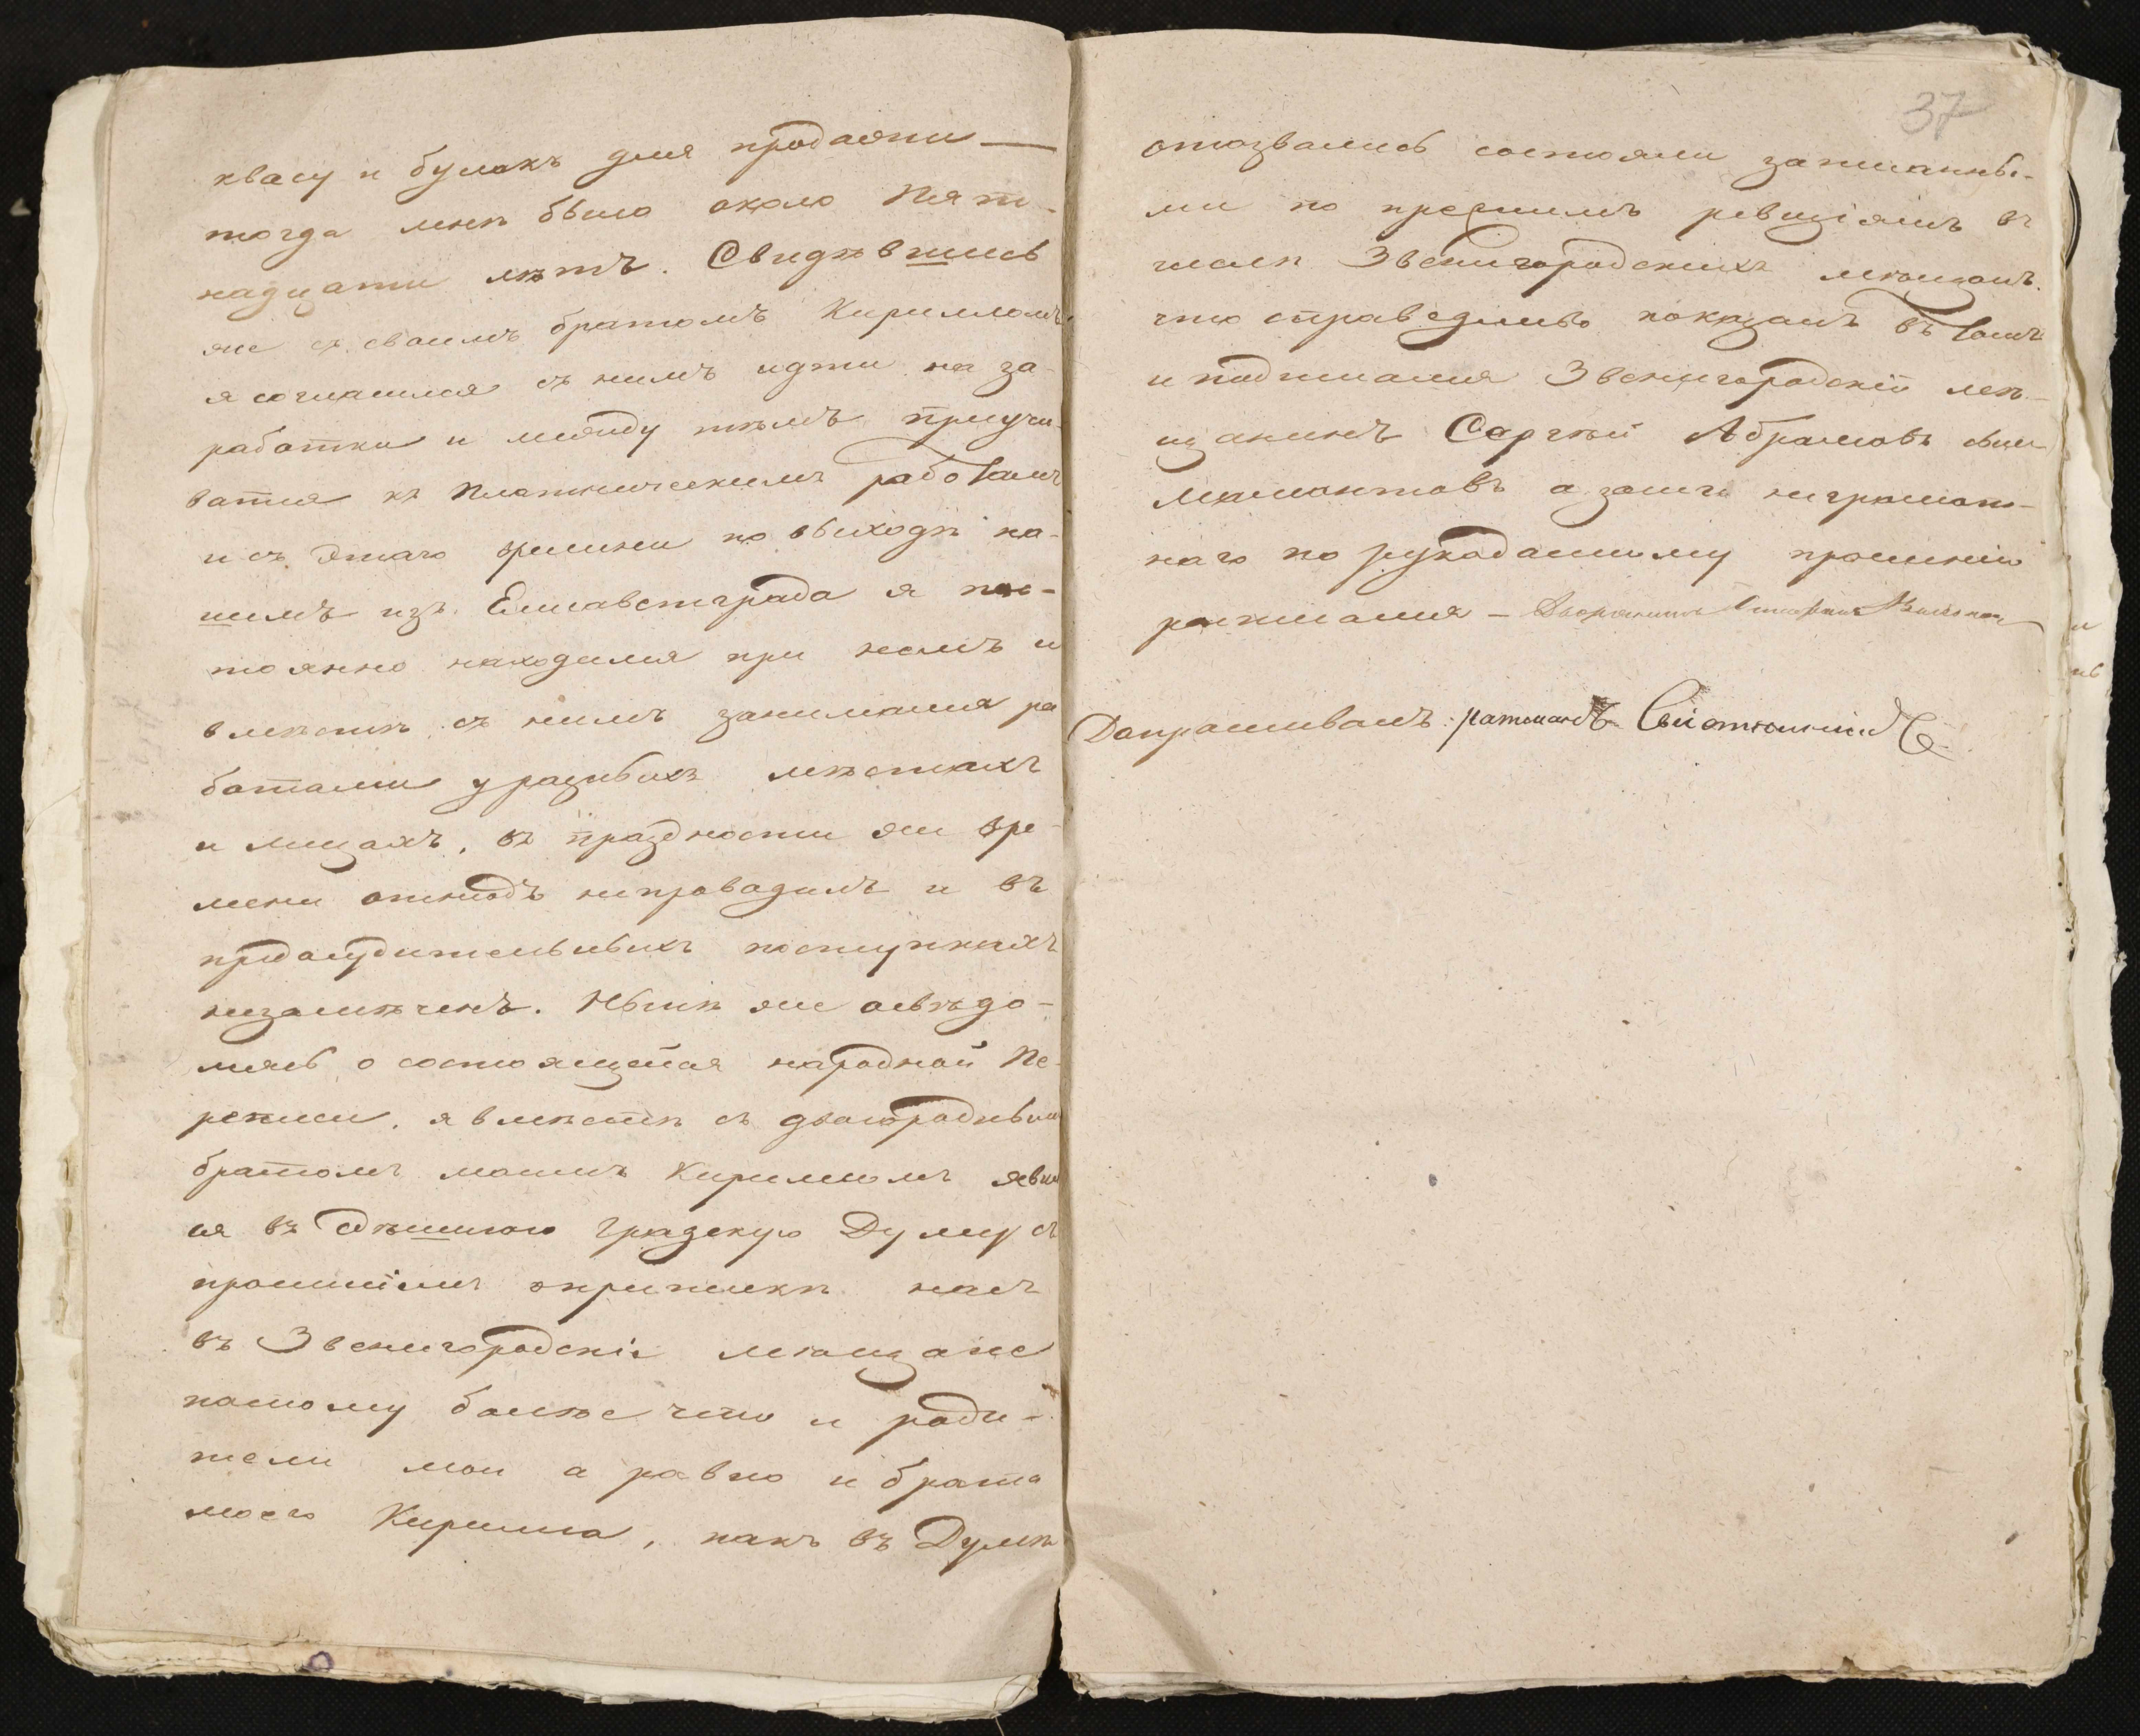 квасу и булокъ для продажи —
тогда мнѣ было около Пят-
надцати лѣтъ. Свидѣвшись
же съ своимъ братомъ Кирилломъ
я согласился съ нимъ идти на за-
работки и между тѣмъ приучи-
ватся къ Плотническимъ работамъ
и съ этаго времени по выходѣ на-
шимъ изъ Елисаветграда я пос-
тоянно находился при немъ и
вмѣстѣ съ нимъ занимался ра
ботами у разныхъ мѣстахъ
и лицахъ, въ праздности же вре-
мени отнюдъ непроводилъ и въ
предосудительныхъ поступкахъ
незамѣченъ. Нынѣ же освѣдо-
мясь о состоящейся народной Пе-
реписи, я вмѣстѣ съ двоюроднымъ
братомъ моимъ Кириломъ явил
ся въ здѣшнюю Градскую Думу съ
прошеніемъ о припискѣ насъ
въ Звенигородскіе мѣщане
потому болѣе что и роди-
тели мои а равно и брата
моего Кирилла, какъ въ Думѣ
37
отозвались состояли записаны-
ми по прежнимъ ревизіямъ въ
числѣ Звенигородскихъ мѣщанъ.
что справедливо показалъ въ томъ
и подписался Звенигородскій мѣ-
щанинъ Сергѣй Абрамовъ сынъ
Мамонтовъ а занего неграмот-
наго по рукоданному прошенію
росписался — Дворянинъ
Допрашивалъ: ратманъ